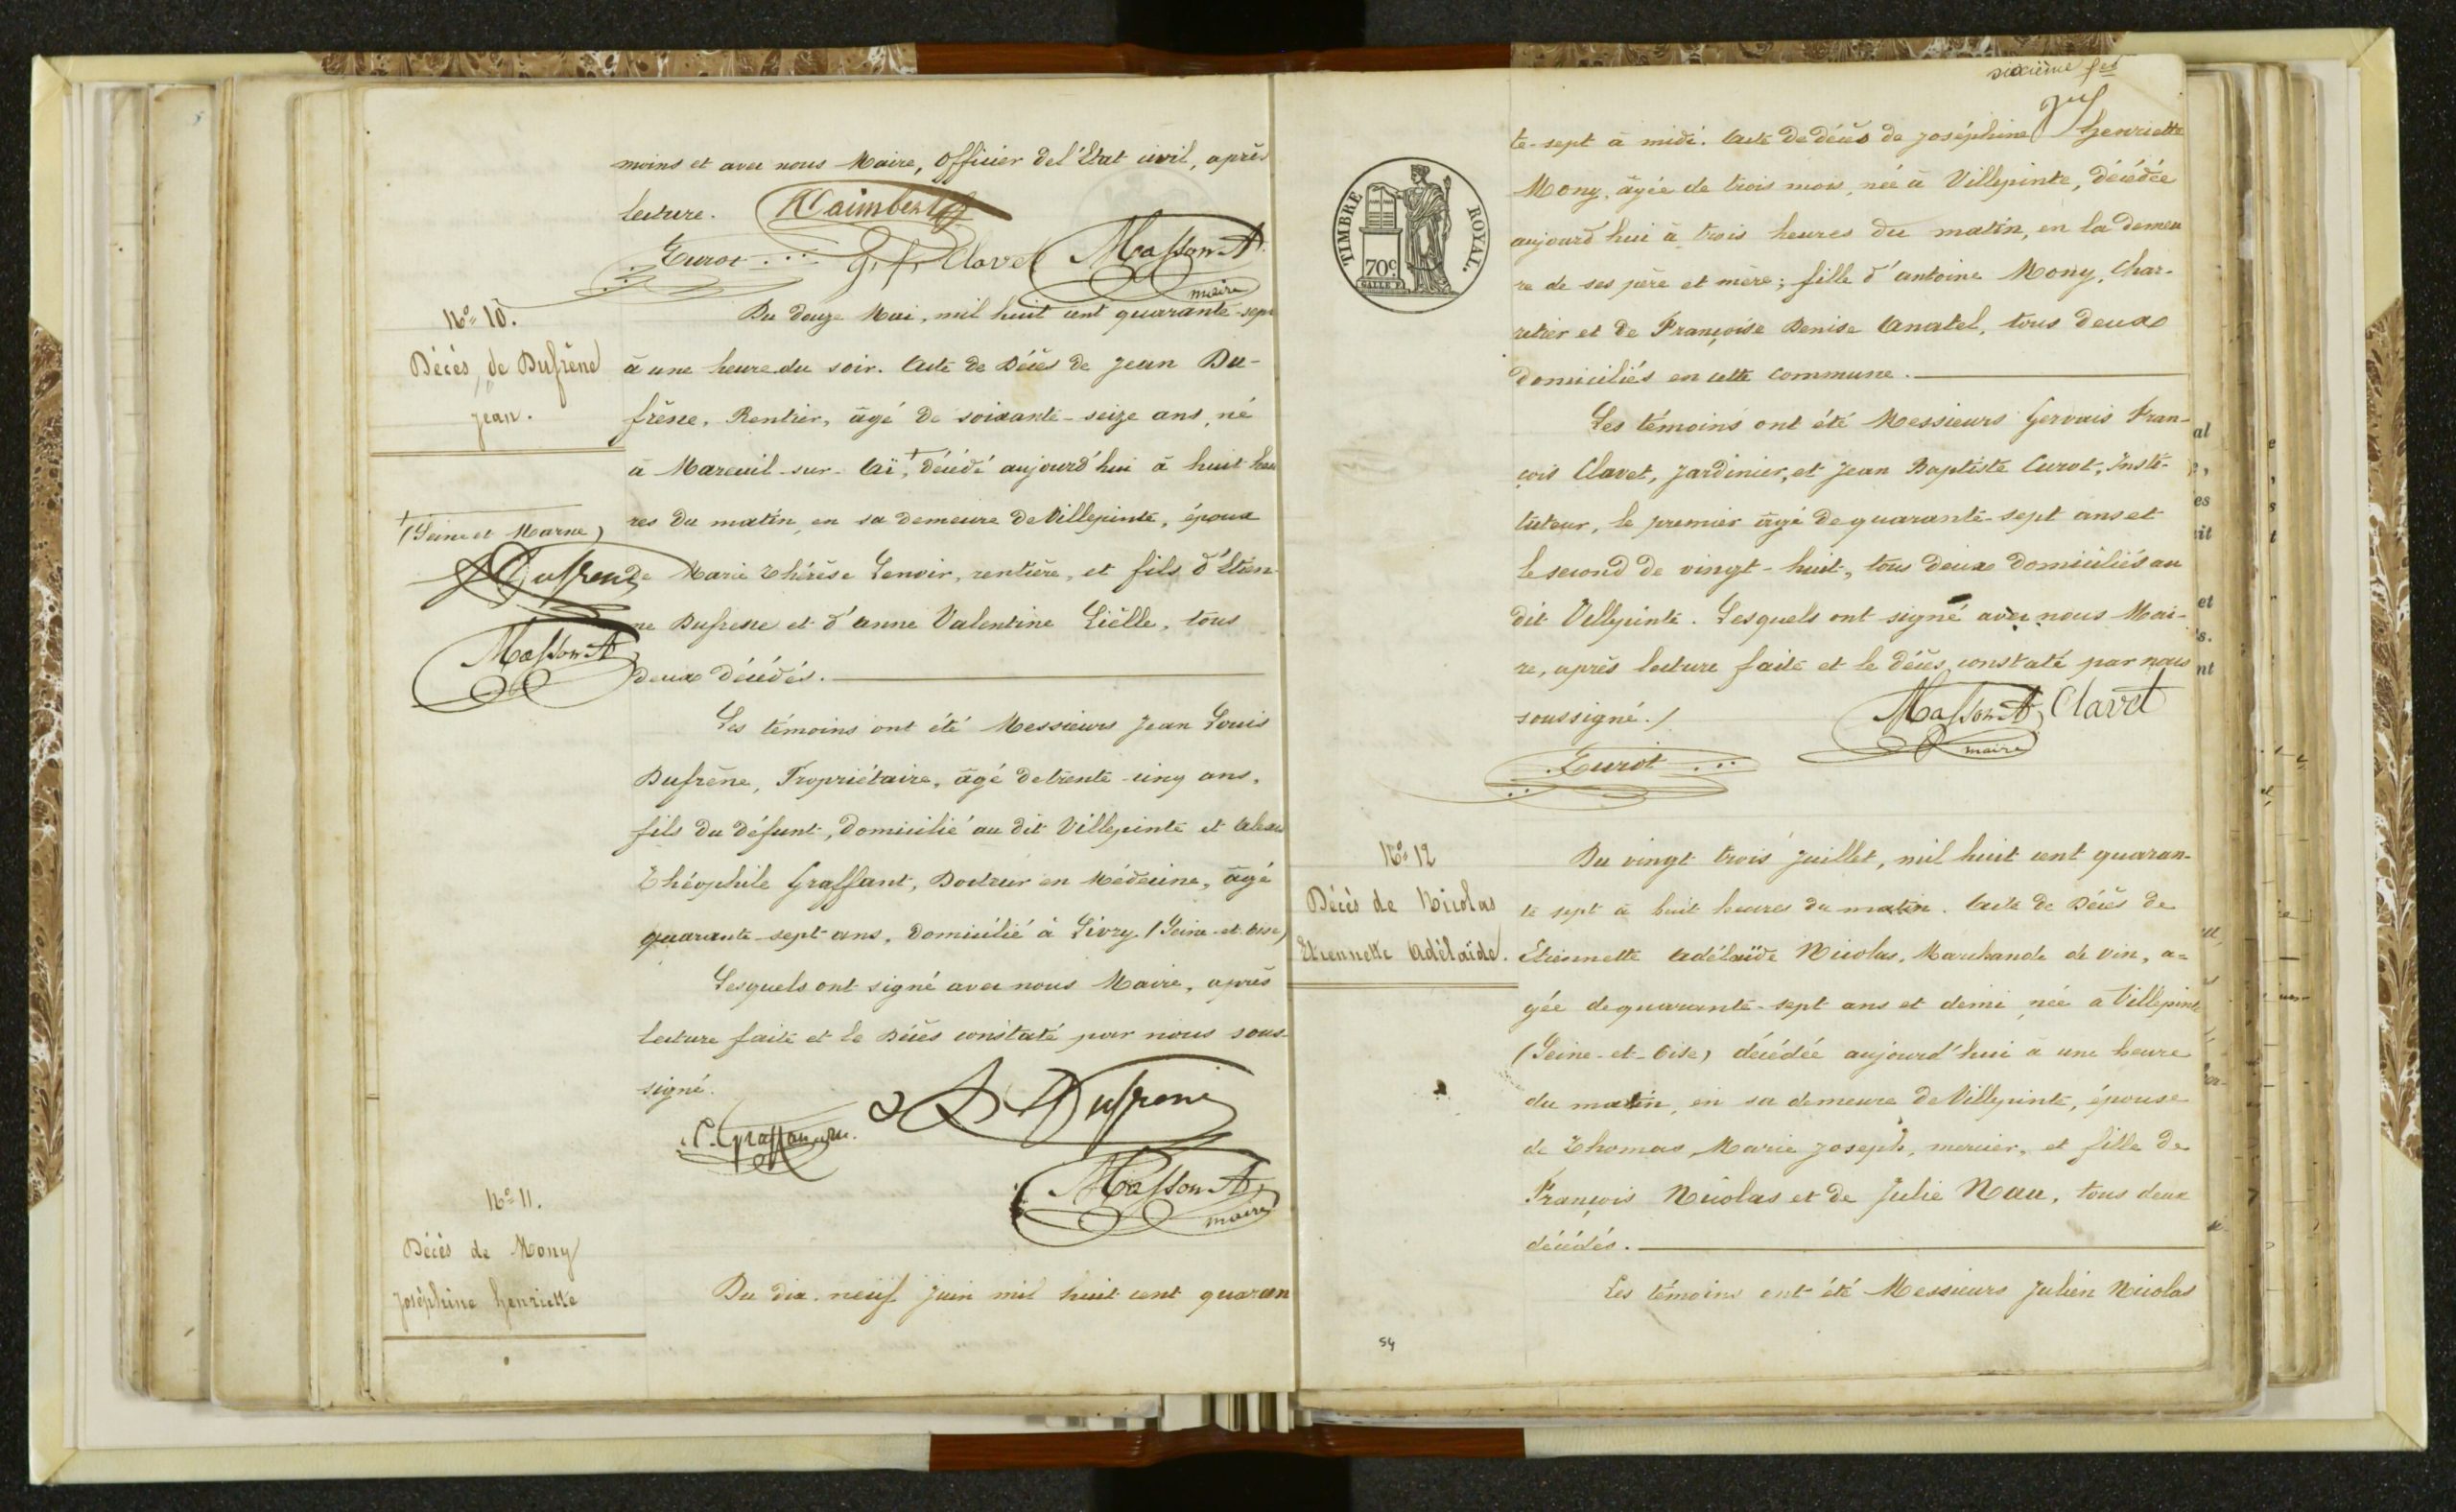 moins et avec nous Maire, Officier de l'Etat civil, après
lecture.
Curot G. f. Clavet Masson A.
maire
N° 10.
Décès de Dufrêne
Jean.
Du douze Mai, mil huit cent quarante-sept
à une heure du soir. Acte de Décès de Jean Du-
frêne, Rentier, âgé de soixante-seize ans, né
à Mareuil-sur-Aï,+ décédé aujourd'hui à huit heu
res du matin, en sa demeure de Villepinte, époux
de Marie Thérèse Lenoir, rentière, et fils d'Etien
ne Dufresne et d'anne Valentine Lièlle, tous
deux décédés.
+
(Seine et Marne)
Dufrene
Masson A
Les témoins ont été Messieurs Jean Louis
Dufrêne, Propriétaire, âgé de trente-cinq ans,
fils du défunt, domicilié au dit Villepinte et
Théophile Graffant, Docteur en Médecine, âgé
quarante-sept ans, domicilié à Livry (Seine-et-Oise)
Lesquels ont signé avec nous Maire, après
lecture faite et le Décès constaté par nous sous-
signé.
Dufrene
Masson A
maire
N° 11.
Décès de Mony
Joséphine henriette
Du dix-neuf Juin mil huit cent quaran
sixième
TIMBRE ROYAL.
70c
te-sept à midi. Acte de décès de Joséphine henriette
Mony, âgée de trois mois, née à Villepinte, décédée
aujourd'hui à trois heures du matin, en la demeu
re de ses père et mère; fille d'antoine Mony, Char-
retier et de Françoise Denise Anatel, tous deux
domiciliés en cette commune.
Les témoins ont été Messieurs Gervais Fran-
çois Clavet, Jardinier, et Jean Baptiste Curot, Insti-
tuteur, le premier âgé de quarante-sept ans et
le second de vingt-huit, tous deux domiciliés au
dit Villepinte. Lesquels ont signé avec nous Mai-
re, après lecture faite et le décès constaté par nous
soussigné./
Masson A Clavet
maire
Curot
N° 12
Décès de Nicolas
Etiennette Adélaïde.
Du vingt trois Juillet, mil huit cent quaran-
te sept à huit heures du matin. Acte de Décès de
Etiennette Adélaïde Nicolas, Marchande de vin, a-
gée de quarante-sept ans et demi, née à Villepinte
(Seine-et-Oise) décédée aujourd'hui à une heure
du matin, en sa demeure de Villepinte, épouse
de Thomas, Marie Joseph, mercier, et fille de
François Nicolas et de Julie Nau, tous deux
décédés.
Les témoins ont été Messieurs Julien Nicolas
54